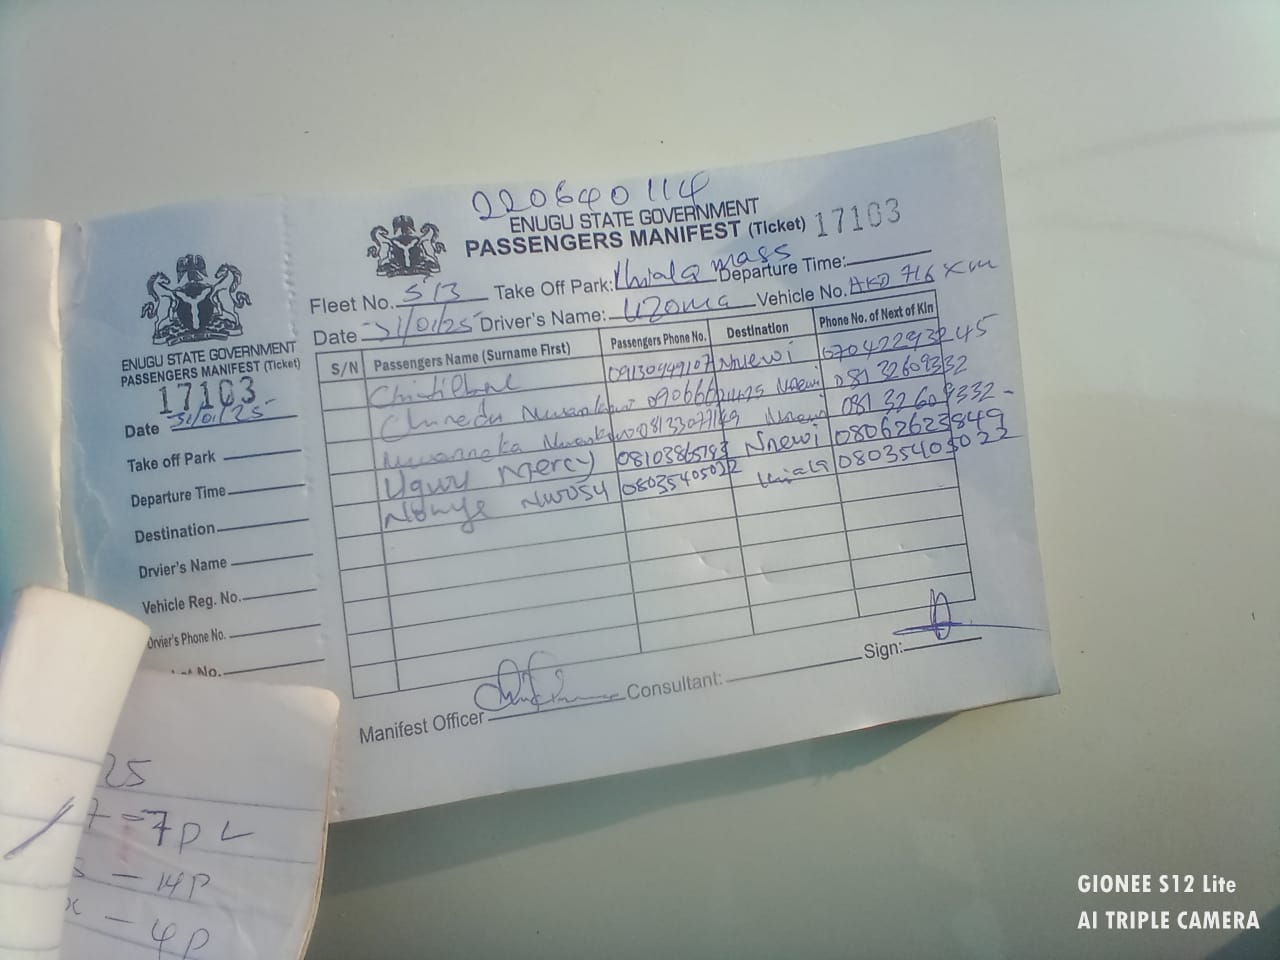 220640114
ENUGU STATE GOVERNMENT
PASSENGERS MANIFEST (Ticket) 17103
Fleet No. 513 Take Off Park: Ihiala mass Departure Time:
Date 31/01/25 Driver's Name: Uzoma Vehicle No. AKD 716
S/N Passengers Name (Surname First) Passengers Phone No. Destination Phone No. of Next of Kin
09130449107 Nnewi 07042293245
Chinedu Nnewi 08132609332
Nwanneka 08133077149 Nnewi 08132609332 -
Ugwu Mercy Nnewi 08062623849
Nwosu 08035405022 Ihiala 08035405023
Manifest Officer Consultant: Sign:
ENUGU STATE GOVERNMENT
PASSENGERS MANIFEST (Ticket)
17103
Date 31/01/25
Take off Park
Departure Time
Destination
Drvier's Name
Vehicle Reg. No.
Drvier's Phone No.
No.
25
7-7P
- 14P
- 4P
GIONEE S12 Lite
AI TRIPLE CAMERA